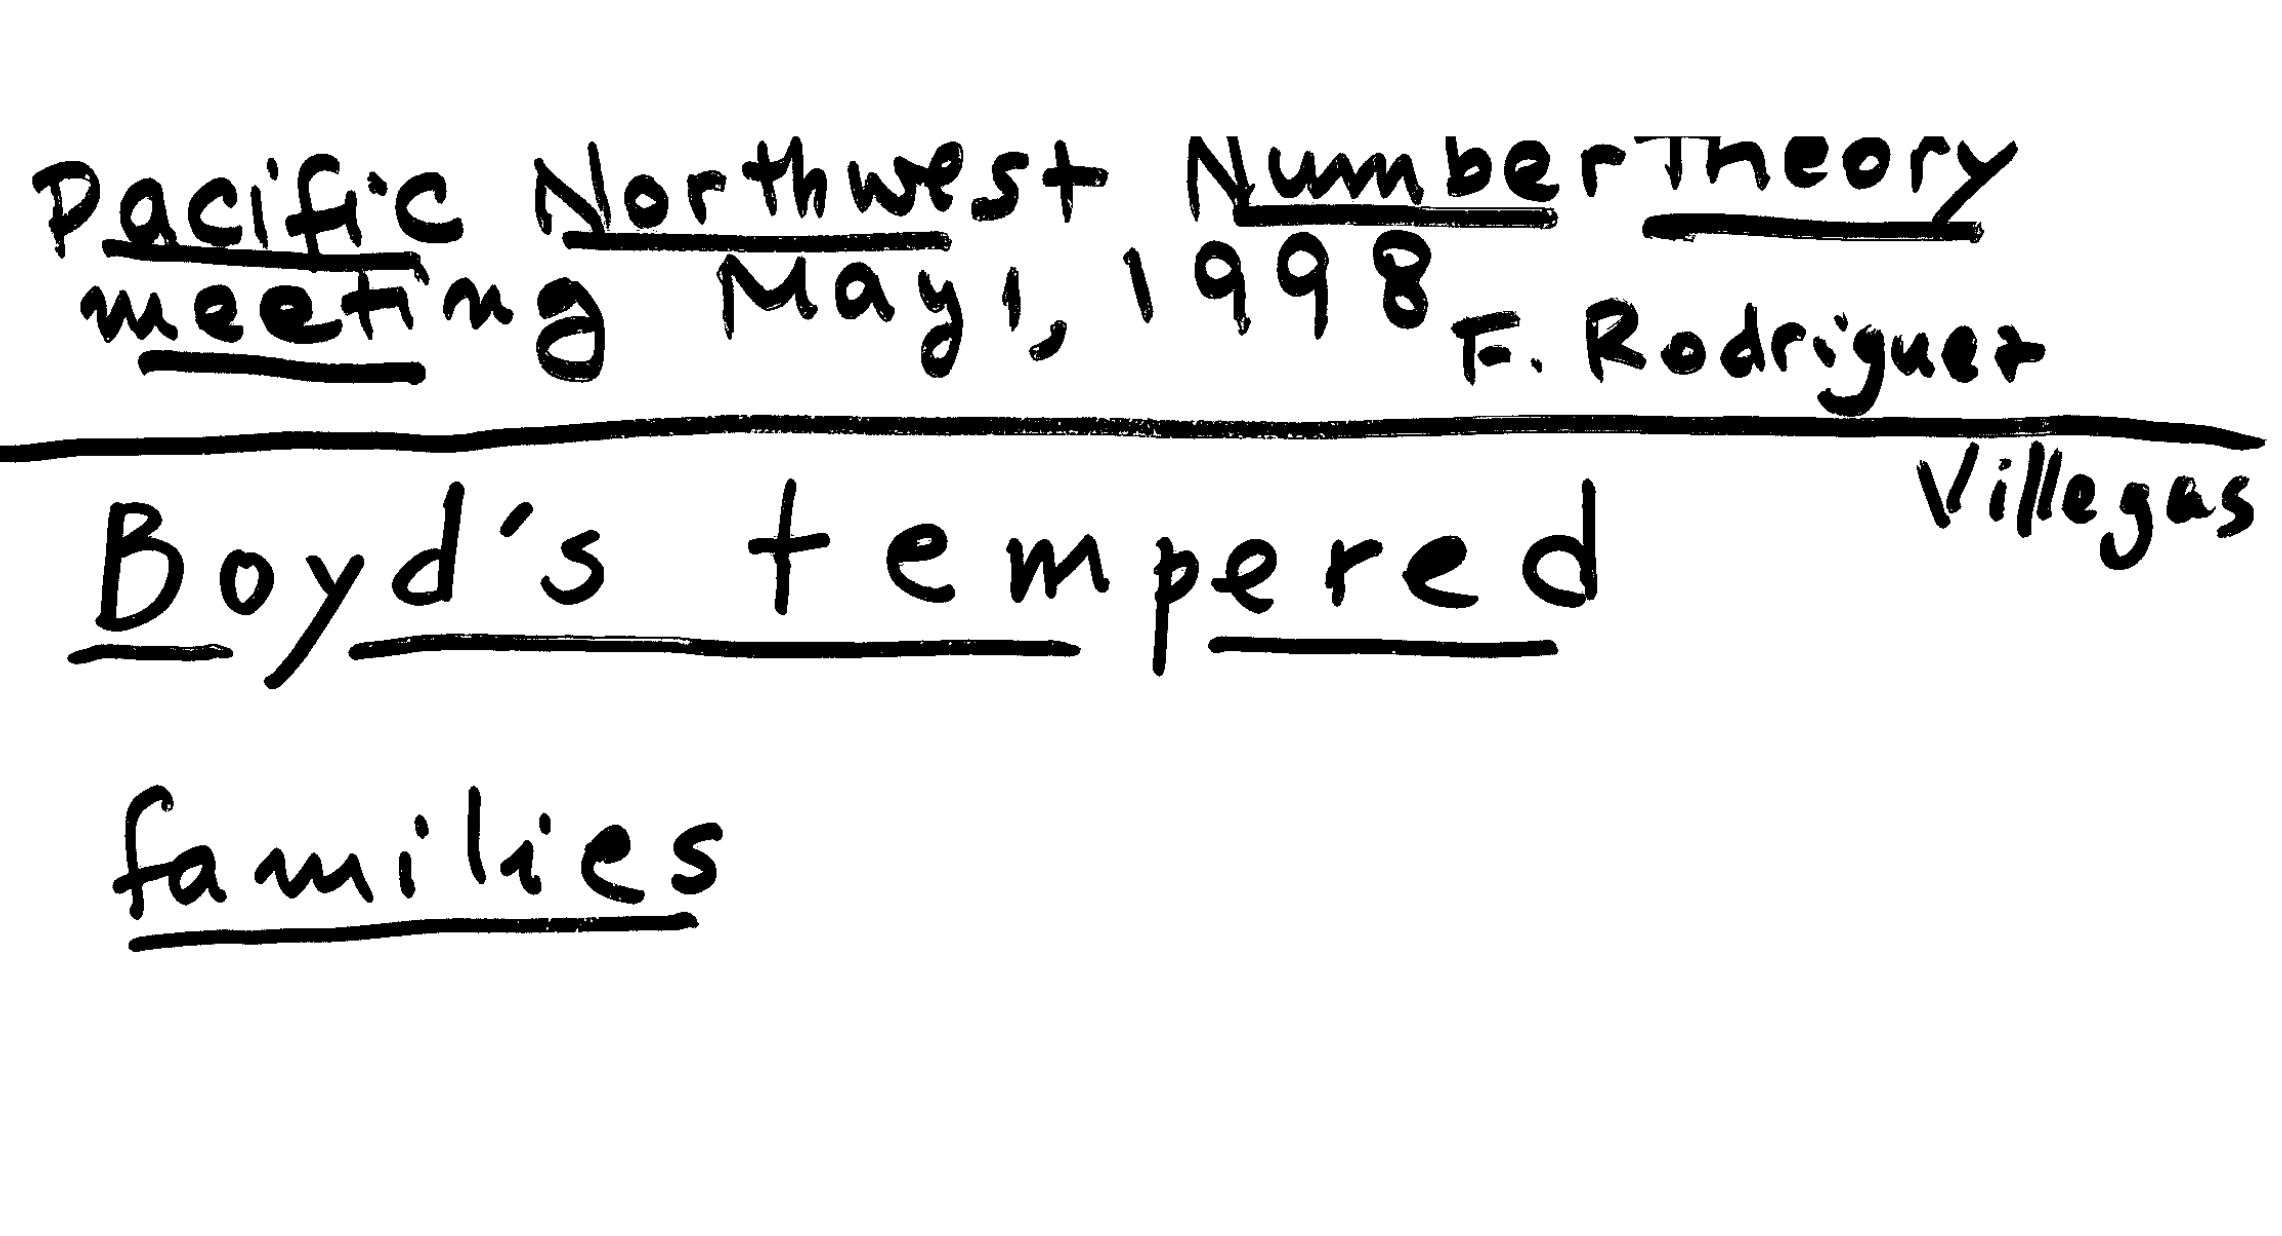 Pacific Northwest Number Theory
meeting May 1, 1998 F. Rodriguez
Villegas
Boyd's tempered
families